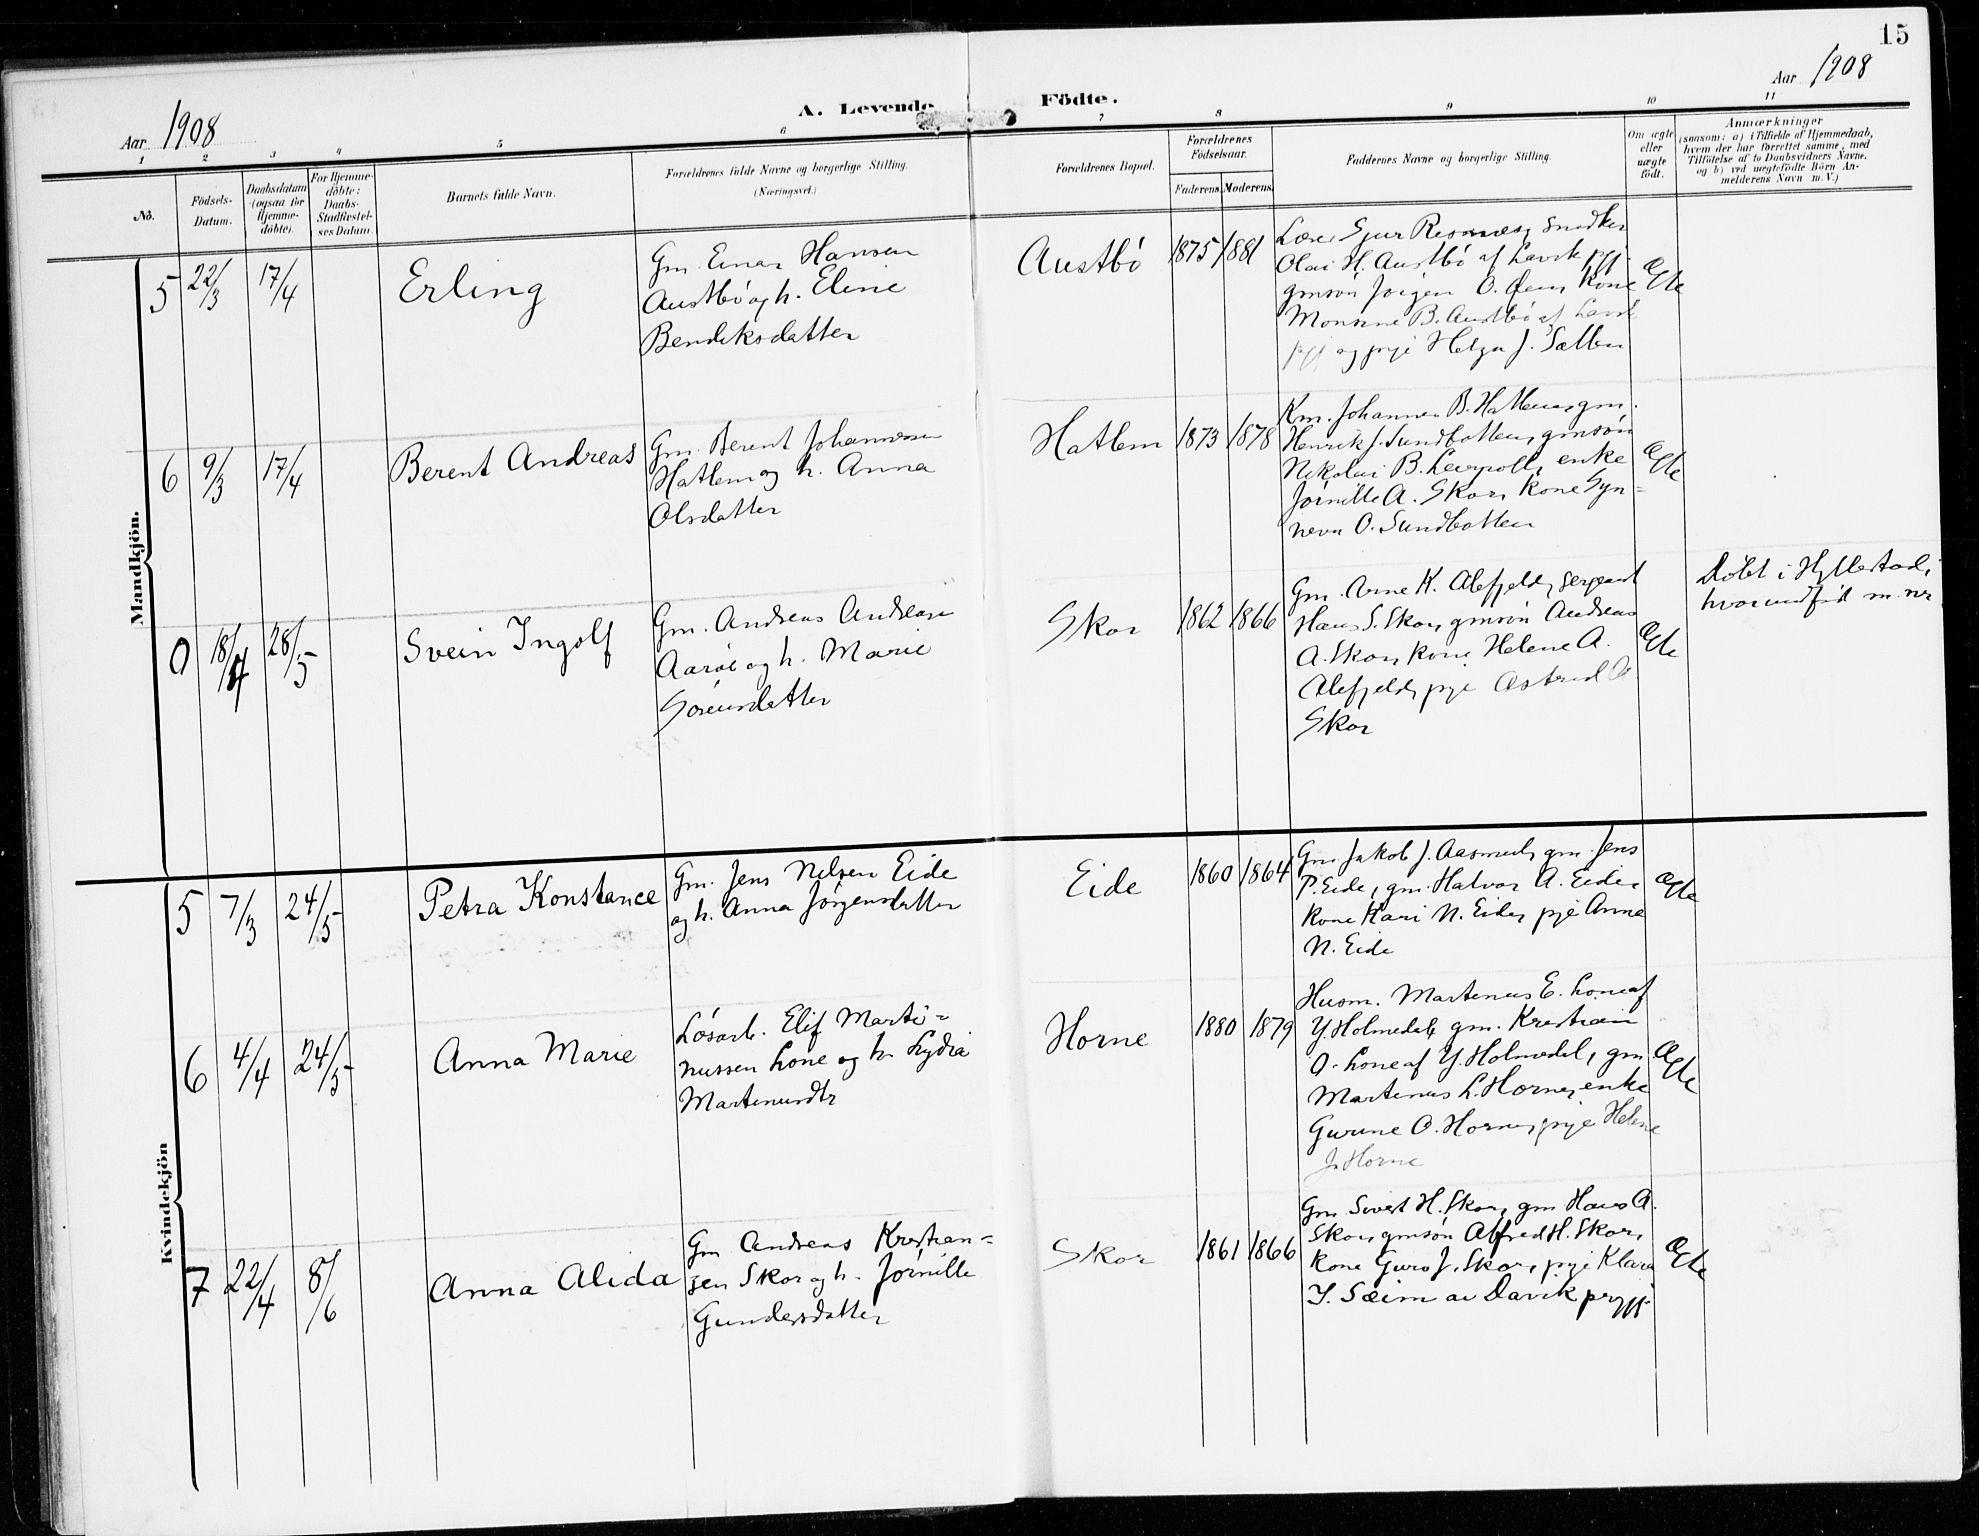 15
Aar 1908
A. Levende Födte.
Aar 1908
1 2 3 4 5 6 7 8 9 10 11
No.
Födsels-Datum.
Daabsdatum (ogsaa for Hjemme-döbte).
For Hjemme-döbte: Daabs-Stadfæstel-ses Datum.
Barnets fulde Navn.
Forældrenes fulde Navne og borgerlige Stilling.
(Næringsvei.)
Forældrenes Bopæl.
Forældrenes Födselsaar.
Faderens. Moderens.
Faddernes Navne og borgerlige Stilling.
Om ægte eller uægte födt.
Anmærkninger
(saasom: a) i Tilfælde af Hjemmedaab,
hvem der har forrettet samme, med
Tilföielse af to Daabsvidners Navne,
og b) ved uægtefödte Börn An-
melderens Navn m. V.)
Mandkjön.
5 22/3 17/4 Erling
Gm. Einar Hansen
Austbö og h. Eline
Bendiksdatter
Austbö 1875 1881
Lærer Sjur Risnes, snedker
Olai H. Austbö af Lavik pgj.
gmsön Jörgen O. kone
B. Austbö af Lavik
pgj og pige Helga J.
Ægte
6 9/3 17/4 Berent Andreas
Gm. Berent Johannesen
Hatlem og h. Anna
Olsdatter
Hatlem 1873 1878
Km. Johannes B. Hatlem, gm.
Henrik J. Sundbotten, gmsön
Nikolai B. Leirpoll, enke
Jörnille A. Skor, kone Syn=
neva O. Sundbotten
Ægte
0 18/4 28/5 Svein Ingolf
Gm. Andreas Andreasen
Aaröe og h. Marie
Sörensdatter
Skor 1862 1866
Gm. Arne K. Alefjeld, sergeant
Hans S. Skor, gmsön Andreas
A. Skor, kone Helene A.
Alefjeld, pige Astrid A.
Skor
Ægte
Döbt i Hyllestad,
hvor indfört m. nr
Kvindekjön
5 7/3 24/5 Petra Konstance
Gm. Jens Nilsen Eide
og h. Anna Jörgensdatter
Eide 1860 1864
Gm Jakob J. Aasmul, gm. Jens
P. Eide, gm. Halvor A. Eide,
kone Kari N. Eide, pige Anna
N. Eide
Ægte
6 4/4 24/5 Anna Marie
Lösarb. Elif Marti=
nussen Lone og h. Lydia
Martinusdtr
Horne 1880 1879
Husm. Martinus E. Lone af
Y. Holmedal, gm. Kristian
O. Lone af Y. Holmedal, gm
Martinus L. Horne, enke
Gurine O. Horne, pige Helene
J. Horne
Ægte
7 22/4 8/6 Anna Alida
Gm Andreas Kristian=
sen Skor og h. Jörnille
Gundersdatter
Skor 1861 1866
Gm. Sivert H. Skor, gm Hans A.
Skor, gmsön Alfred H. Skor,
kone Guro J. Skor, pige Klara
I. Sæim av Davik prgjj
Ægte